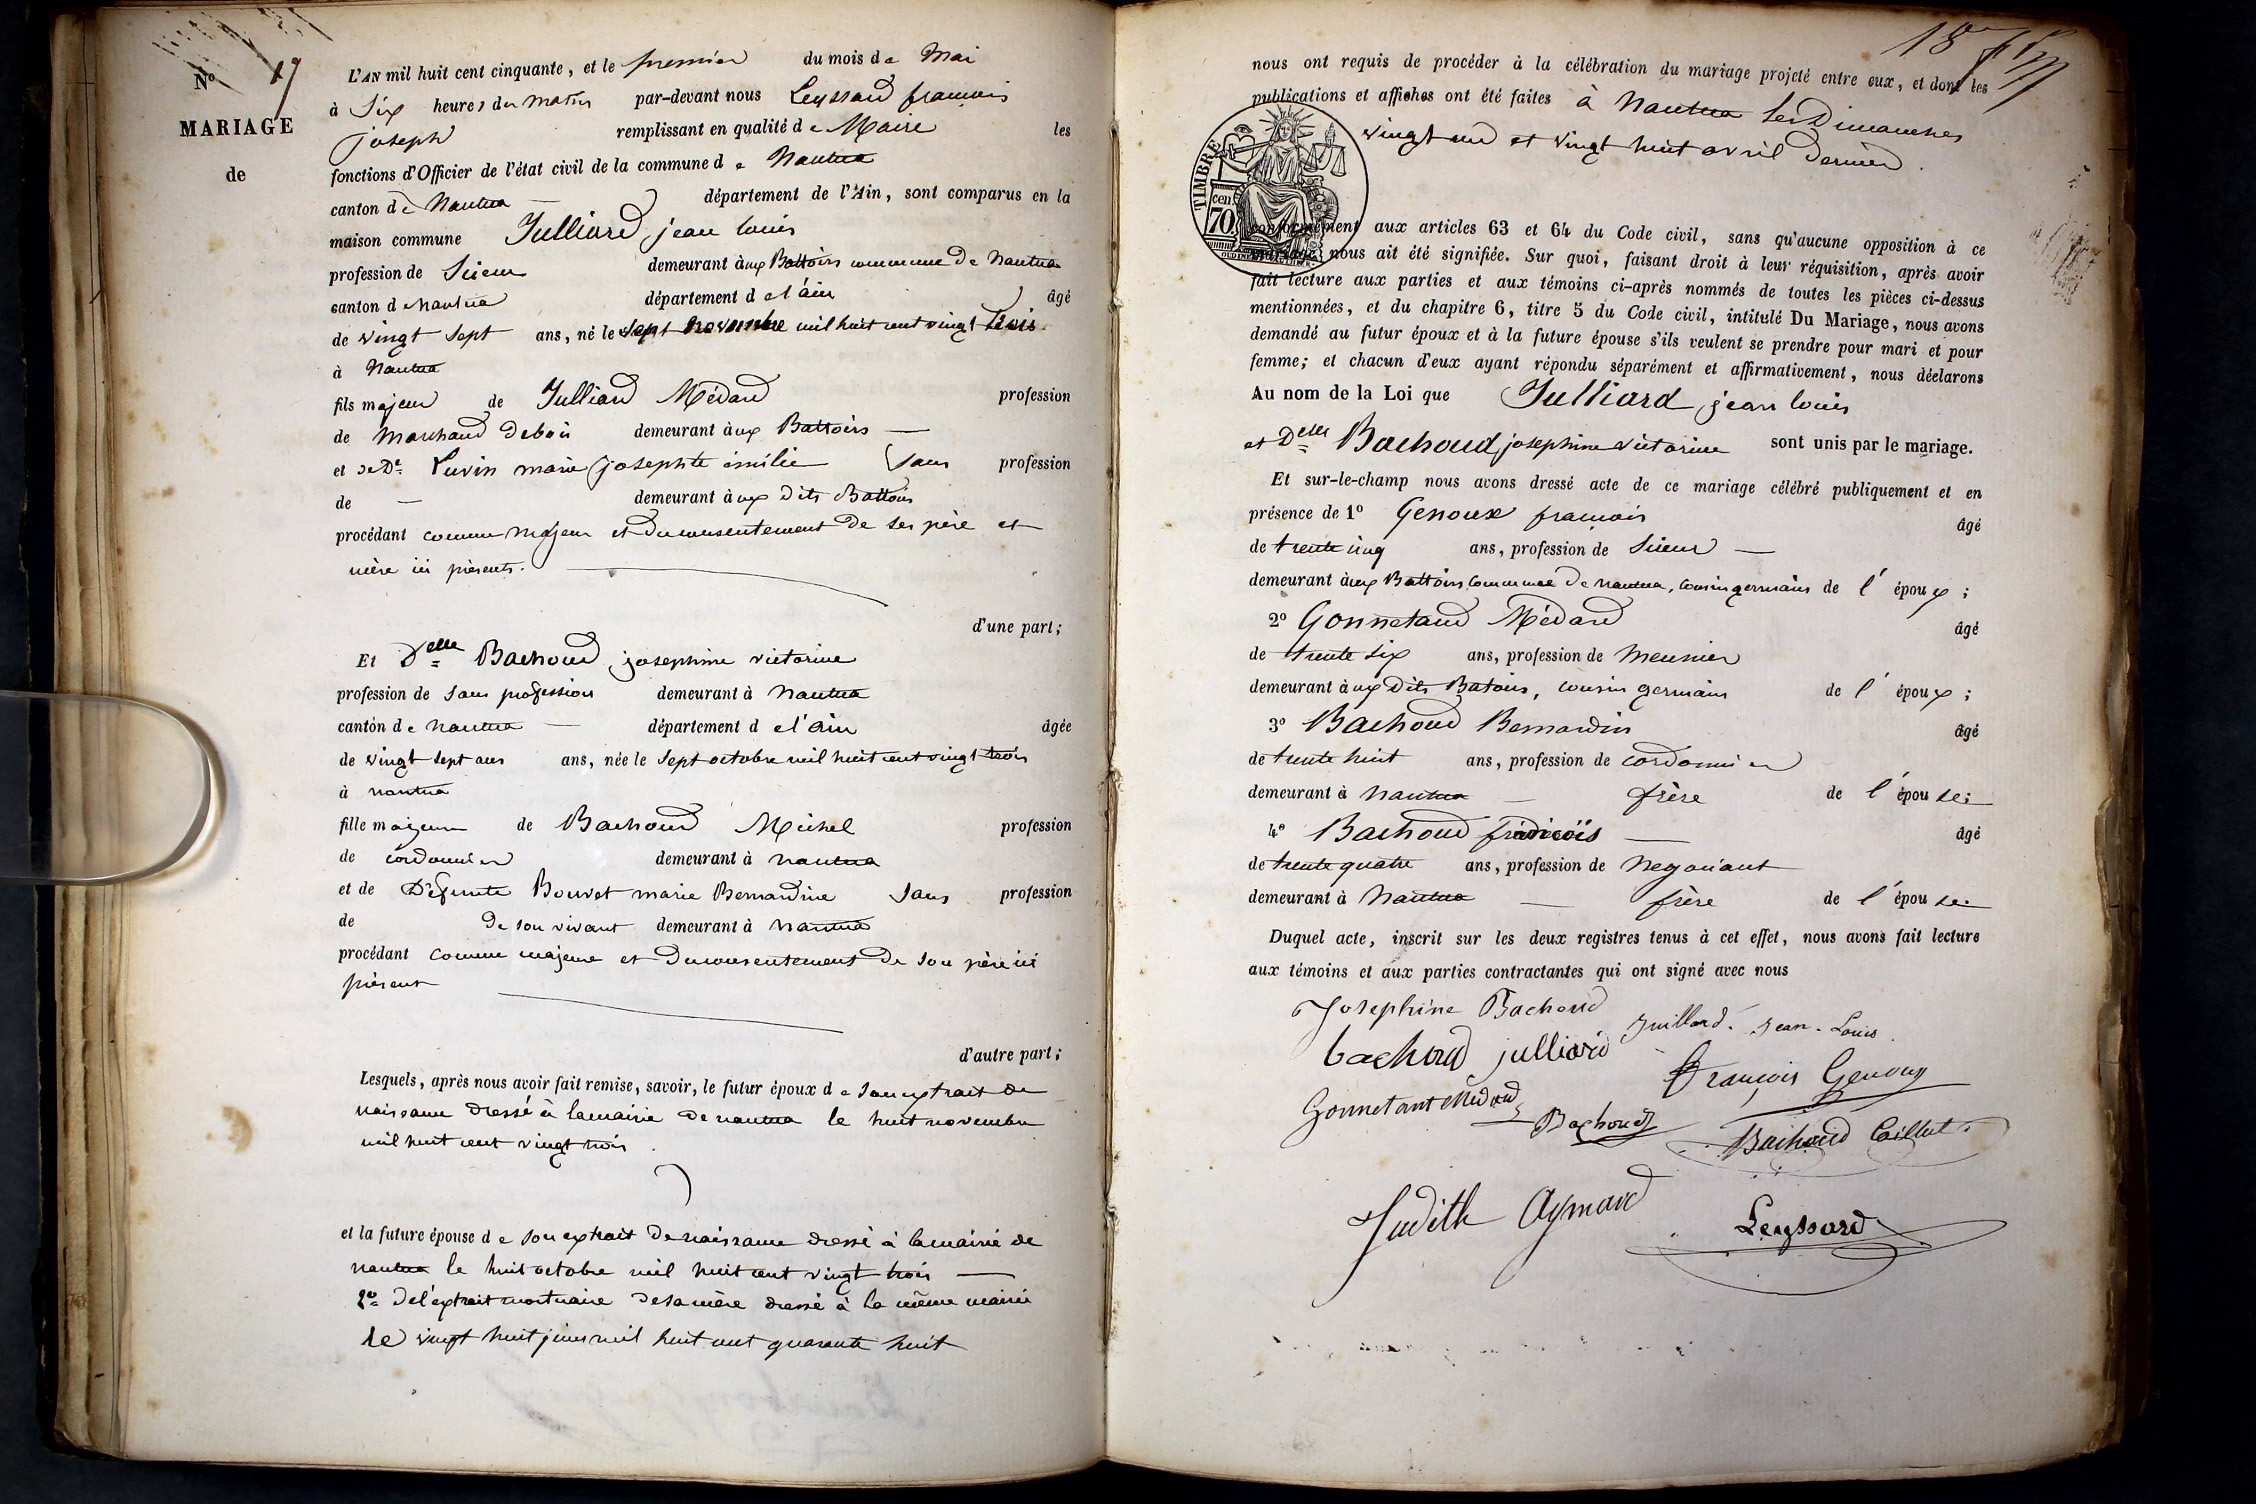 N° 17
MARIAGE
de
L'AN mil huit cent cinquante, et le premier du mois de Mai
à Six heures du matin par-devant nous Leyssard françois
joseph remplissant en qualité de Maire les
fonctions d'Officier de l'état civil de la commune de Nantua
canton de Nantua département de l'Ain, sont comparus en la
maison commune Julliard jean louis
profession de Scieur demeurant aux Battoirs commune de Nantua
canton de Nantua département de l'ain âgé
de vingt sept ans, né le sept novembre mil huit cent vingt trois
à Nantua
fils majeur de Julliard Médard profession
de Marchand debois demeurant aux Battoirs
et de De Luvin marie josephte émilie Sans profession
de — demeurant aux dits Battoirs
procédant comme Majeur et du consentement de ses père et
mère ici présents.
d'une part;
Et Delle Bachoud josephine victorine
profession de sans profession demeurant à Nantua
canton de Nantua département de l'ain âgée
de vingt sept ans ans, née le sept octobre mil huit cent vingt trois
à nantua
fille majeure de Bachoud Michel profession
de cordonnier demeurant à nantua
et de Défunte Bouvet marie Bernardine Sans profession
de de son vivant demeurant à Nantua
procédant comme majeure et du consentement de son père ici
présent
d'autre part;
Lesquels, après nous avoir fait remise, savoir, le futur époux de son extrait de
naissance dressé à lamairie de nantua le huit novembre
mil huit cent vingt trois
et la future épouse de son extrait de naissance dressé à lamairie de
nantua le huit octobre mil huit cent vingt trois
2° de l'extrait mortuaire de sa mère dressé à la même mairie
le vingt huit juin mil huit cent quarante huit
18
nous ont requis de procéder à la célébration du mariage projeté entre eux, et dont les
publications et affiches ont été faites à Nantua les Dimanches
vingt un et vingt huit avril dernier.
TIMBRE
70 cen.
conformément aux articles 63 et 64 du Code civil, sans qu'aucune opposition à ce
mariage nous ait été signifiée. Sur quoi, faisant droit à leur réquisition, après avoir
fait lecture aux parties et aux témoins ci-après nommés de toutes les pièces ci-dessus
mentionnées, et du chapitre 6, titre 5 du Code civil, intitulé Du Mariage, nous avons
demandé au futur époux et à la future épouse s'ils veulent se prendre pour mari et pour
femme; et chacun d'eux ayant répondu séparément et affirmativement, nous déclarons
Au nom de la Loi que Julliard jean louis
et Delle Bachoud josephine victorine sont unis par le mariage.
Et sur-le-champ nous avons dressé acte de ce mariage célébré publiquement et en
présence de 1° Genoux françois âgé
de trente cinq ans, profession de Scieur
demeurant aux Battoirs commune de nantua, cousin germain de l'époux;
2° Gonnetand Médard âgé
de trente six ans, profession de Meunier
demeurant aux dits Batoirs, cousin germain de l'époux;
3° Bachoud Bernardin âgé
de trente huit ans, profession de cordonnier
demeurant à Nantua frère de l'épouse;
4° Bachoud âgé
de trente quatre ans, profession de Negociant
demeurant à Nantua frère de l'épouse.
Duquel acte, inscrit sur les deux registres tenus à cet effet, nous avons fait lecture
aux témoins et aux parties contractantes qui ont signé avec nous
Josephine Bachoud
Juillard. Jean-Louis
bachoud julliard
françois Genoux
Gonnetant Médard
Bachoud
Bachoud Caillat
Judith Aymard
Leyssard